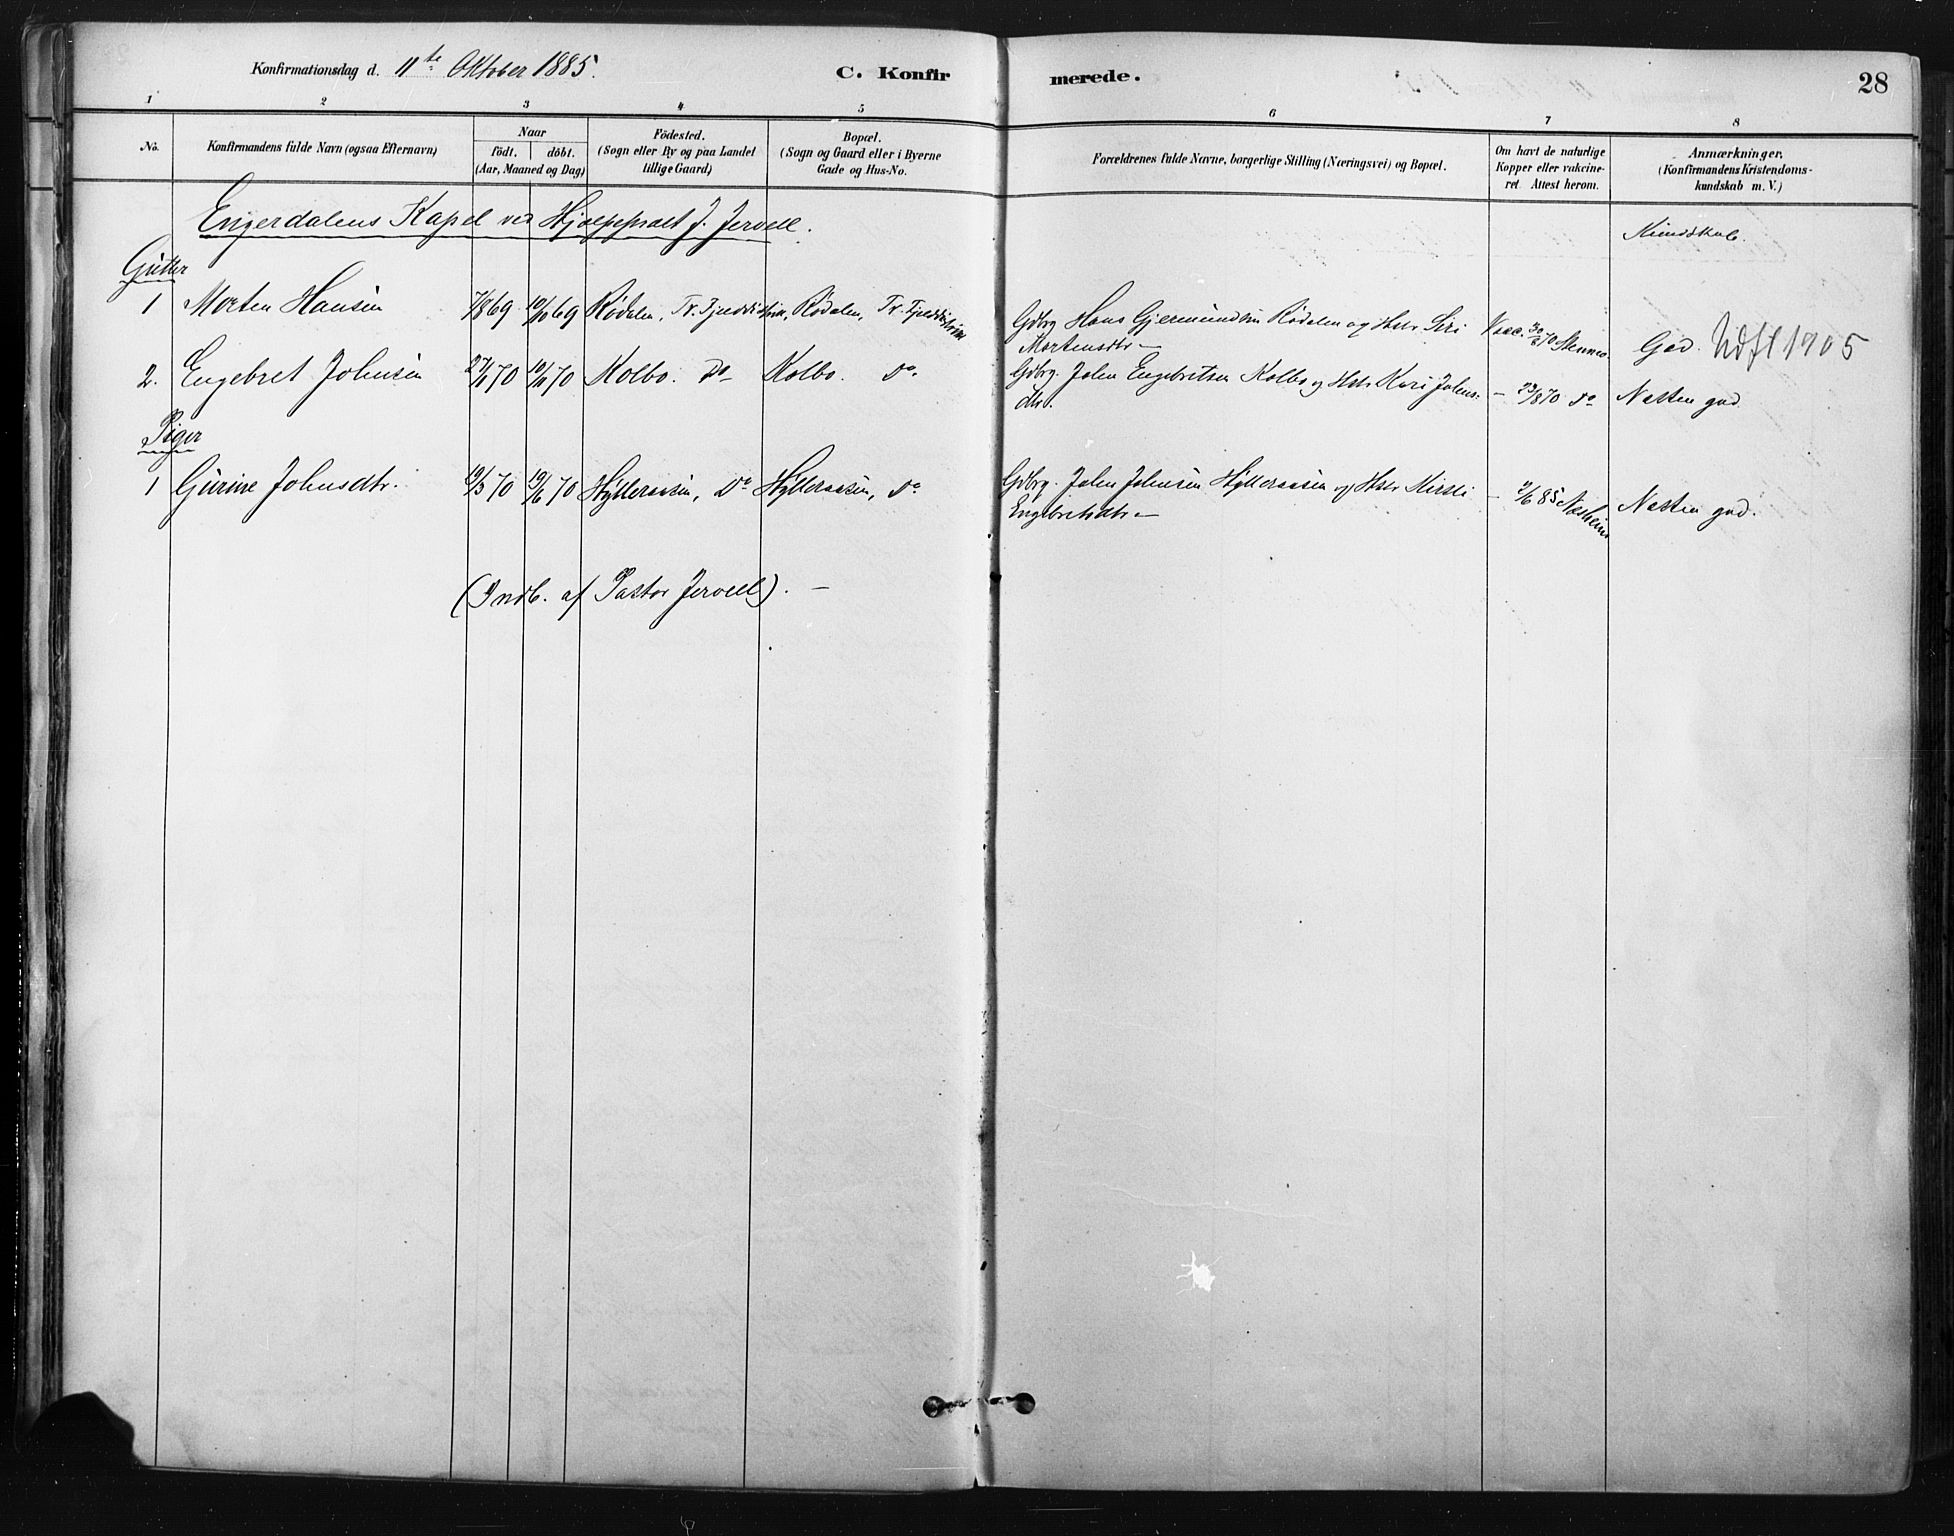 Konfirmationsdag d. 11te Oktober 1885.
C. Konfirmerede.
28
1 2 3 4 5 6 7 8
No.
Konfirmandens fulde Navn (ogsaa Efternavn)
Naar
födt. döbt.
(Aar, Maaned og Dag)
Födested.
(Sogn eller By og paa Landet
tillige Gaard)
Bopæl.
(Sogn og Gaard eller i Byerne
Gade og Hus-No.
Forældrenes fulde Navne, borgerlige Stilling (Næringsvei) og Bopæl.
Om havt de naturlige
Kopper eller vakcine-
ret. Attest herom.
Anmærkninger,
(Konfirmandens Kristendoms-
kundskab m. V.)
Engerdalens Kapel ved Hjælpepræst J. Jervell.
Kundskab.
Gutter
1 Morten Hansen 7/8 69 10/10 69 Rødalen, Tr. Fjelddistrikt, Rødalen, Tr. Fjelddistrikt Gdbrg. Hans Gjermundsen Rødalen og Hstr Siri Vacc. 30/8 70 Stenmo. God. Udfl 1905
Mortensdtr —
2. Engebret Johnsen 27/1 70 10/10 70 Kolbo. Do Kolbo. Do. Gdbrg. John Engebretsen Kolbo og Hstr Kari Johns- — 23/8 70 do Næsten god.
dtr.
Piger
1 Gurine Johnsdtr. 19/3 70 19/6 70 Hylleraasen, Do Hylleraasen, Do. Gdbrg. John Johnsen Hylleraasen og Hstr Kirsti — 2/6 85 Næsheim Næsten god.
Engebretsdtr —
(Indb. af Pastor Jervell). —